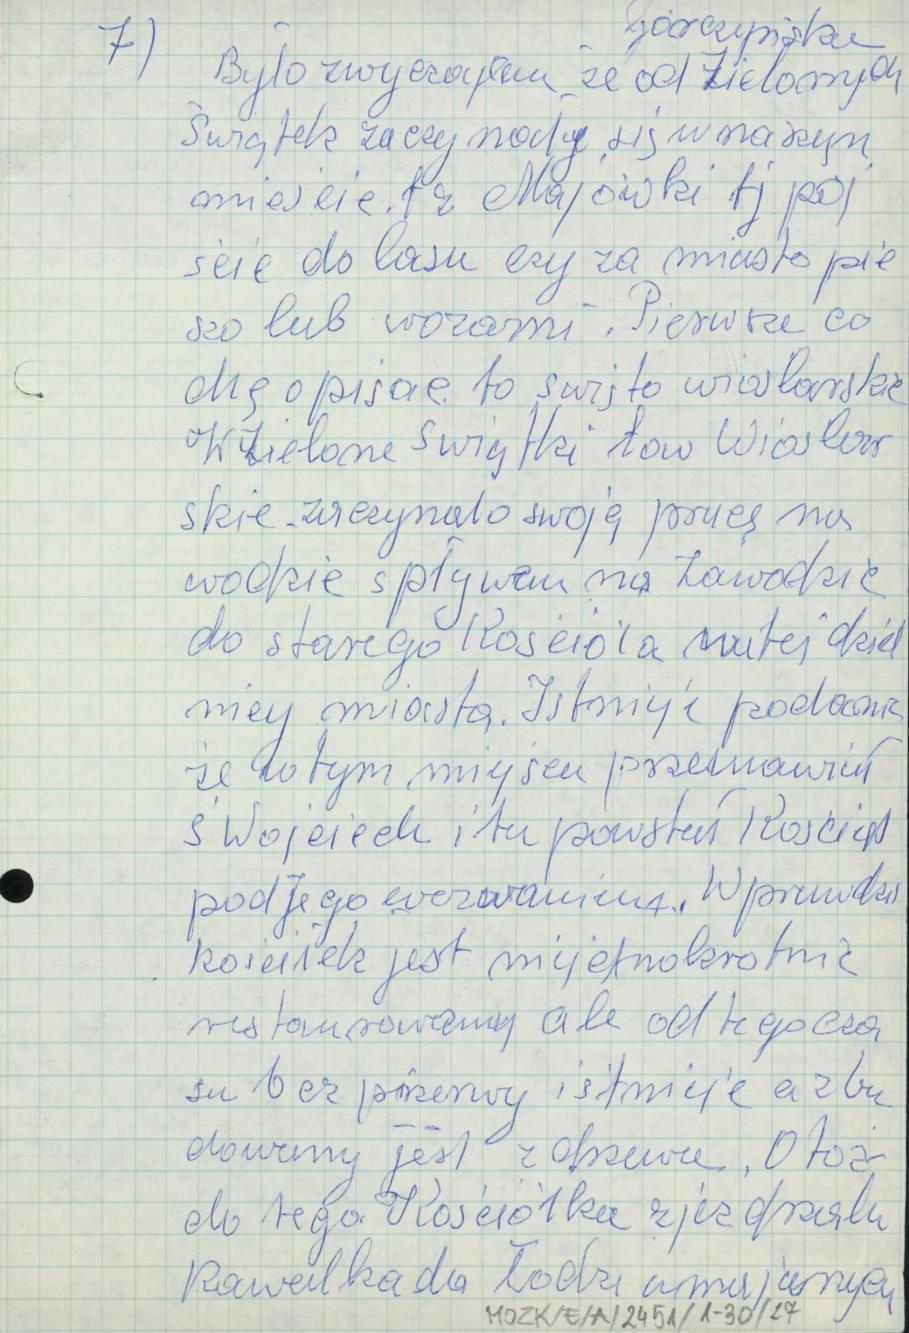 Górczyńska
7)
Było zwyczajem że od Zielonych
Świątek zaczynały się w naszym
mieście tz Majówki tj pój
ście do lasu czy za miasto pie
szo lub wozami. Pierwsze co
chę opisac to swięto wioślarskie
W Zielone Swiątki tow Wioslar
skie zaczynało swoją pracę na
wodzie spływem na Zawodzie
do starego Kościoła w tej dziel
nicy miasta. Istnieje podanie
że w tym miejscu przemawiał
ś Wojciech i tu powstał Kościół
pod Jego wezwaniem. Wprawdzie
kościółek jest niejednokrotnie
restaurowany ale od tego cza
su bez przerwy istnieje a zbu
dowany jest z drzewa. Otoż
do tego Kościółka zjeżdzała
Kawalkada Łodzi umajonych
MOZK/E/A/2451/1-30/27